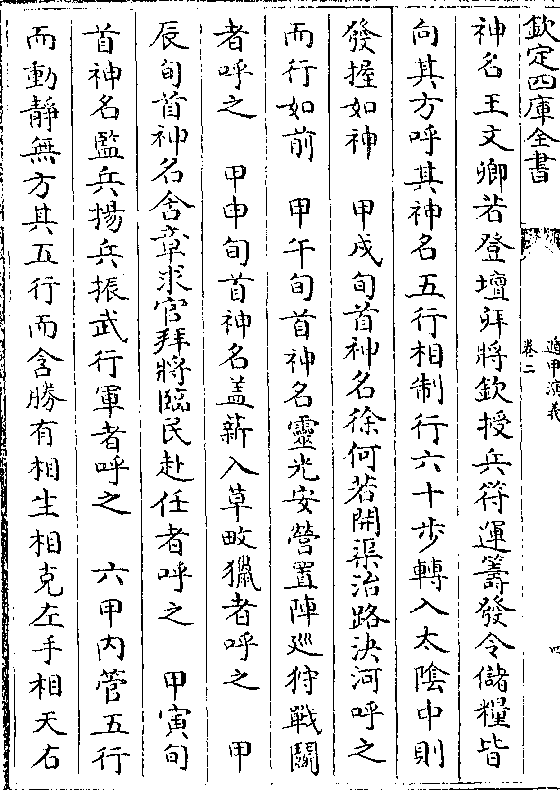 欽定四庫全書
遁甲演義
卷二
四
神名王文卿若登壇拜將欽授兵符運籌發令儲糧皆
向其方呼其神名五行相制行六十步轉入太陰中則
發握如神　甲戌旬首神名徐何若開渠治路決河呼之
而行如前　甲午旬首神名靈光安營置陣廵狩戰鬭
者呼之　甲申旬首神名盖新入草畋獵者呼之　甲
辰旬首神名含章求官拜將臨民赴任者呼之　甲寅旬
首神名監兵揚兵振武行軍者呼之　六甲内管五行
而動靜無方其五行而含勝有相生相克左手相天右